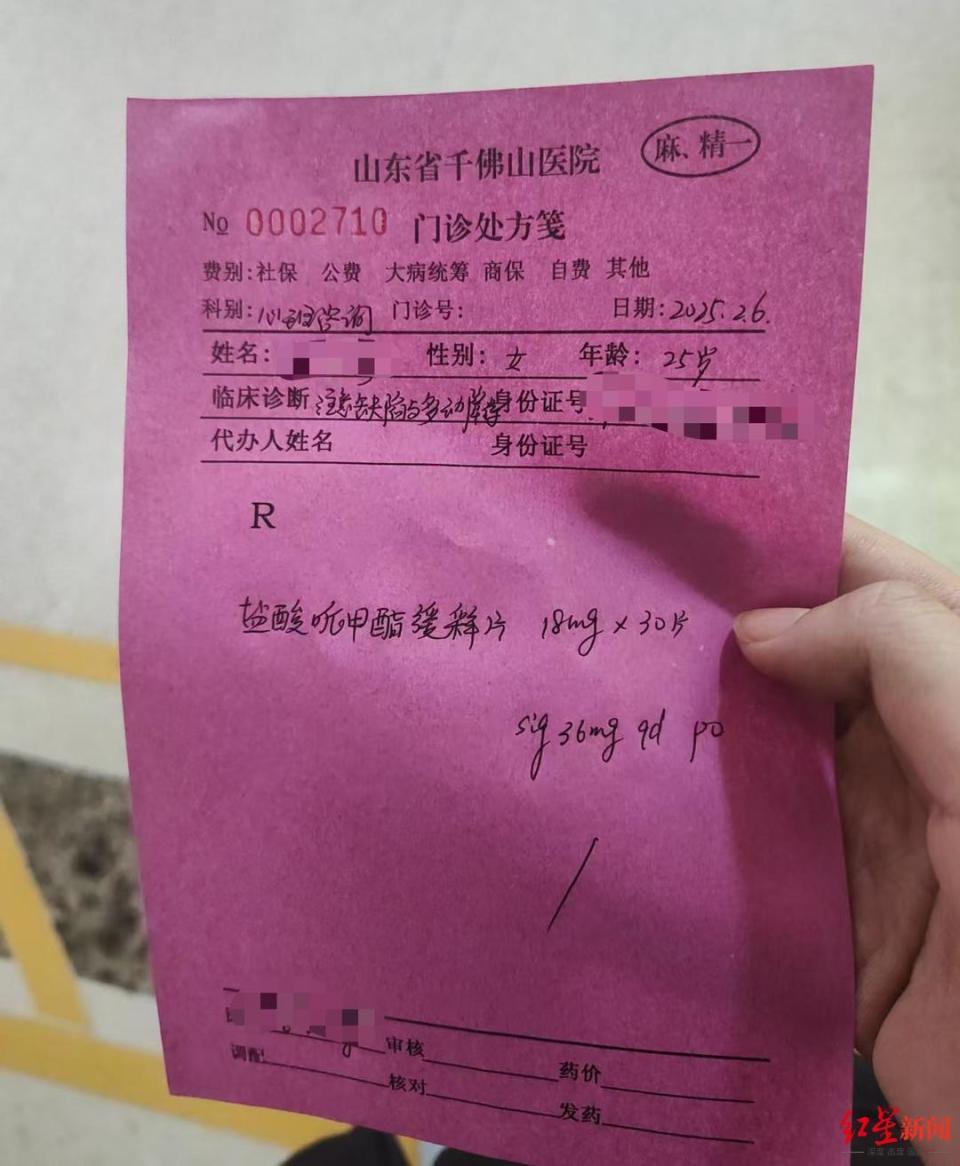 麻、精一
山东省千佛山医院
No 0002710 门诊处方笺
费别:社保 公费 大病统筹 商保 自费 其他
科别:心理咨询 门诊号: 日期:2025.2.6.
姓名: 性别:女 年龄:25岁
临床诊断 注意缺陷与多动障碍 身份证号
代办人姓名 身份证号
R
盐酸哌甲酯缓释片 18mg x 30片
sig 36mg qd po
审核
调配 核对 药价
发药
红星新闻